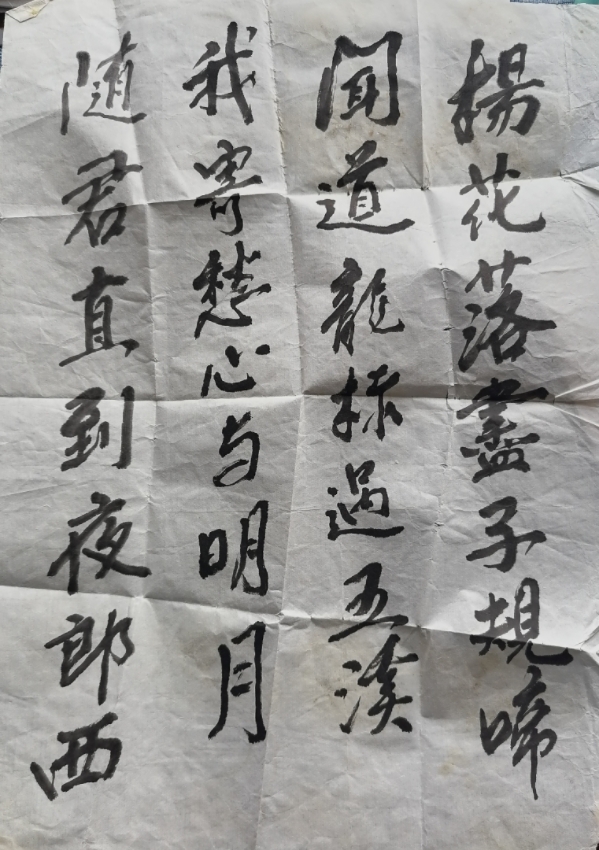 楊花落盡子規啼
聞道龍標過五溪
我寄愁心与明月
随君直到夜郎西